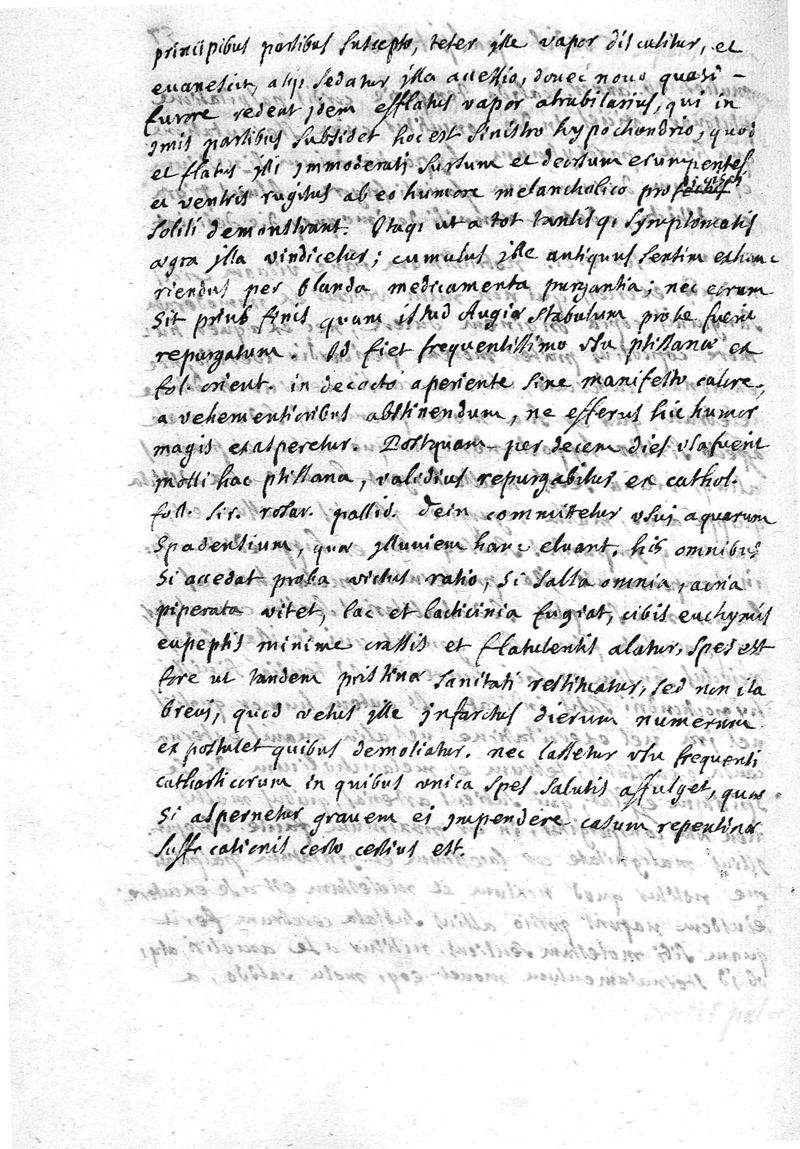 principibus partibus suscepto, teter ille vapor discutitur, et
euanescit, atq; sedatur illa accessio, donec nouo quasi -
furore redeat idem efflatus vapor atrabilarius, qui in
imis partibus subsidet hoc est sinistro hypochondrio, quod
et flatus illi immoderati sursum et deorsum erumpentes
et ventris rugitus ab eo humore melancholico proficisci
soliti demonstrant. Itaq; ut a tot tantisq; symptomatis
ægra illa vindicetur; cumulus ille antiquus sentim exhau
riendus per blanda medicamenta purgantia; nec eorum
sit prius finis quam istud Augiæ stabulum probe fuerit
repurgatum. Id fiet frequentissimo usu ptisanæ ex
fol. orient. in decocto aperiente sine manifesto calore,
a vehementioribus abstinendum, ne efferus hic humor
magis exasperetur. Postquam per decem dies usa fuerit
molli hac ptissana, validius repurgabitur ex cathol.
fol. sir. rosar. pallid. dein committetur usui aquarum
Spadensium, quæ illuuiem hanc eluant. his omnibus
si accedat proba victus ratio, si salsa omnia, acria
piperata vitet, lac et lacticinia fugiat, cibis euchymis
eupeptis minime crassis et flatulentis alatur, spes est
fore ut tandem pristinæ sanitati restituatur, sed non ita
breui, quod vetus ille infarctus dierum numerum
expostulet quibus demoliatur. nec lassetur usu frequenti
catharticorum in quibus unica spes salutis affulget, quæ
si aspernetur grauem ei impendere casum repentinæ
suffocationis certo certius est.